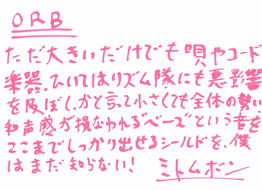 ORB
ただ大きいだけでも唄やコード
楽器、ひいてはリズム隊にも悪影響
を及ぼし、かと言って小さくても全体の勢い
和声感が損なわれる"ベース"という音を
ここまでしっかり出せるシールドを、僕
はまだ知らない!
ミトムボン